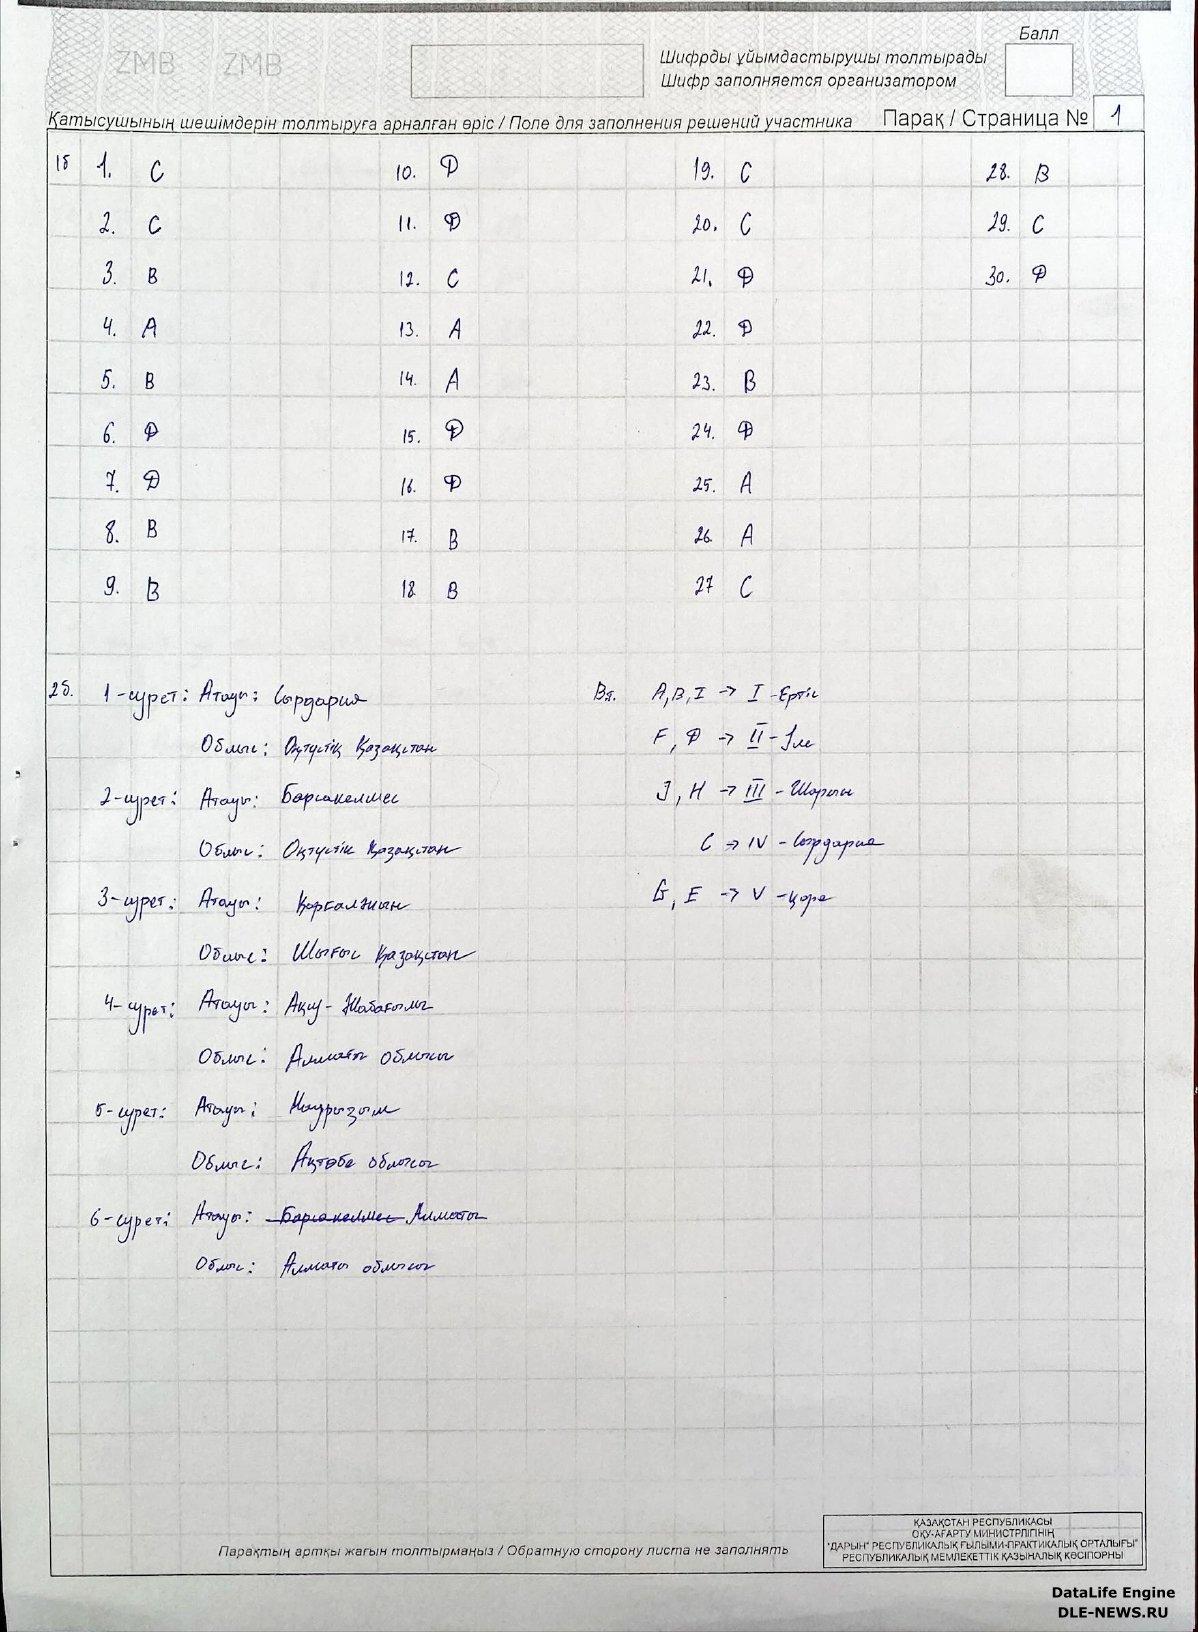 ZMB ZMB
Балл
Шифрды ұйымдастырушы толтырады
Шифр заполняется организатором
Қатысушының шешімдерін толтыруға арналған өріс / Поле для заполнения решений участника
Парақ / Страница № 1
1б 1. C
2. C
3. B
4. A
5. B
6. D
7. D
8. B
9. B
10. D
11. D
12. C
13. A
14. A
15. D
16. D
17. B
18 B
19. C
20. C
21. D
22. D
23. B
24. D
25. A
26. A
27 C
28. B
29. C
30. D
2б. 1-сурет: Атауы: Сырдария
Облыс: Оңтүстік Қазақстан
2-сурет: Атауы: Барсакелмес
Облыс: Оңтүстік Қазақстан
3-сурет: Атауы: Қорғалжын
Облыс: Шығыс Қазақстан
4-сурет: Атауы: Ақсу-Жабағылы
Облыс: Алматы облысы
5-сурет: Атауы: Наурызым
Облыс: Ақтөбе облысы
6-сурет: Атауы: Барсакелмес Алматы
Облыс: Алматы облысы
A, B, I → I - Ертіс
F, D → II - Іле
J, H → III - Шарын
C → IV - Сырдария
G, E → V - қара
Парақтың артқы жағын толтырмаңыз / Обратную сторону листа не заполнять
ҚАЗАҚСТАН РЕСПУБЛИКАСЫ
ОҚУ-АҒАРТУ МИНИСТРЛІГІНІҢ
"ДАРЫН" РЕСПУБЛИКАЛЫҚ ҒЫЛЫМИ-ПРАКТИКАЛЫҚ ОРТАЛЫҒЫ"
РЕСПУБЛИКАЛЫҚ МЕМЛЕКЕТТІК ҚАЗЫНАЛЫҚ КӘСІПОРНЫ
DataLife Engine
DLE-NEWS.RU